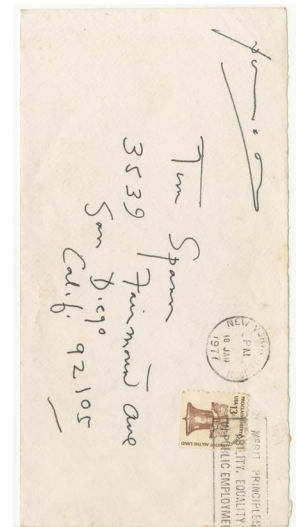 Tim Spann
3539 Fairmount Ave
San Diego
Calif. 92105
NEW YORK
PM
18 JAN
1977
USA 13c
MERIT PRINCIPLES
ABILITY, EQUALITY
IN PUBLIC EMPLOYME